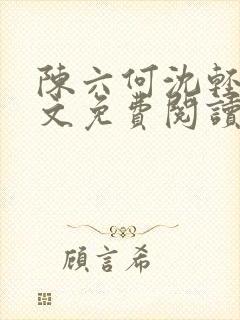 陳六何沈輕
文免費閱讀
顧言希